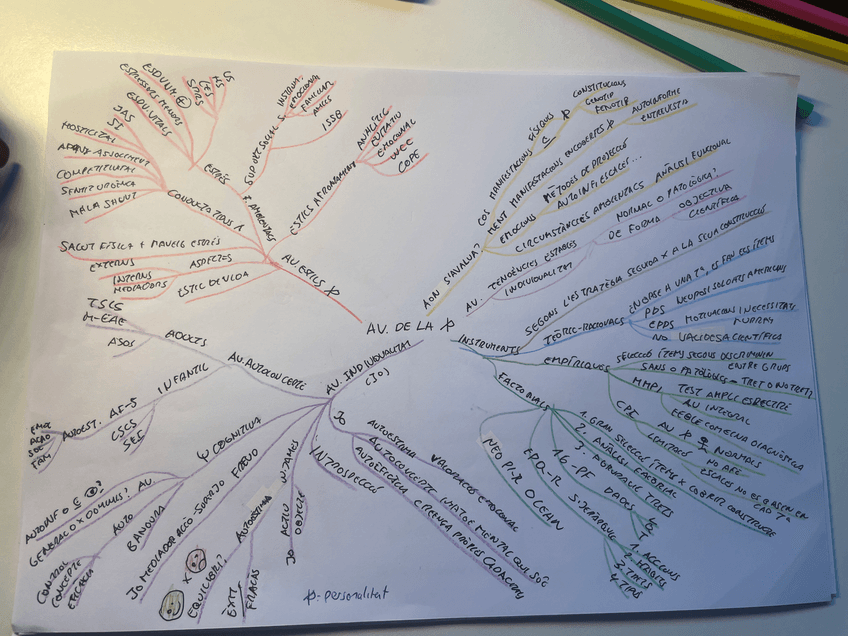 AV. DE LA
AV. ESTILS
ESTRÈS
ESDEVEN.
ESTRESSORS MENORS
ESDEV. VITALS
SUPORT SOCIAL
INSTRUM.
EMOCIONAL
FAMILIAR
AMICS
ISSB
ESTILS AFRONTAMENT
ANALÍTIC
EVITATIU
EMOCIONAL
WCC
COPE
F. AMBIENTALS
CONDUCTA TIPUS A
JAS
SI
HOSTILITAT
COMPETITIVITAT
SENTIT URGÈNCIA
MALA SALUT
SALUT FÍSICA + MANEIG ESTRÈS
ASPECTES
EXTERNS
INTERNS
MEDIADORS
ESTIL DE VIDA
AON S'AVALUA?
COS MANIFESTACIONS FÍSIQUES
CONSTITUCIONS
GENOTIP
FENOTIP
MENT MANIFESTACIONS ENCOBERTES
AUTOINFORME
ENTREVISTA
EMOCIONS
MÈTODES DE PROJECCIÓ
AUTOINF. ESCALES...
CIRCUMSTÀNCIES AMBIENTALS ANÀLISI FUNCIONAL
AV. TENDÈNCIES ESTABLES
INDIVIDUALITAT
NORMAL O PATOLÒGICA?
DE FORMA
OBJECTIVA
CIENTÍFICA
INSTRUMENTS
SEGONS L'ESTRATÈGIA SEGUIDA X A LA SEUA CONSTRUCCIÓ
TEÒRIC-RACIONALS
EN BASE A UNA Tª, ES FAN ELS ÍTEMS
PDS
EPPS MOTIVACIONS I NECESSITATS
MURRAY
NO VALIDESA CIENTÍFICA
EMPÍRIQUES
SELECCIÓ ÍTEMS SEGONS DISCRIMINEN
ENTRE GRUPS
SANS O PATOLÒGICS - TRET O NO TRET
MMPI
TEST AMPLI ESPECTRE
AV. INTEGRAL
FEBLE COM EINA DIAGNÒSTICA
CPI
AV. NORMALS
LIMITACIÓ
NO AFE
ESCALES NO ES BASEN EN
CAP Tª
FACTORIALS
1. GRAN SELECCIÓ ÍTEMS X COBRIR CONSTRUCTE
2. ANÀLISI FACTORIAL
3. AGRUPABLE TRETS
16-PF
DADES
EPQ-R
S. JERÀRQUIC
1. ACCIONS
2. HÀBITS
3. TRETS
4. TIPUS
NEO PI-R OCEAN
AV. INDIVIDUALITAT
(JO)
AV. AUTOCONCEPTE
ADULTS
TSCS
ASQS
INFANTIL
AF-5
AUTOEST.
CSCS
SEI
COGNITIVA
AUTOINF O
GENERAL O X DOMINIS? AV.
AUTO
CONTROL
CONCEPTE
EFICÀCIA
BANDURA
JO MEDIADOR ACCIÓ-SUPERJO FREUD
AUTOESTIMA
EQUILIBRI?
ÈXIT
FRACÀS
W. JAMES
JO
ACTIU
OBJECTE
INTROSPECCIÓ
JO
AUTOESTIMA VALORACIÓ EMOCIONAL
AUTOCONCEPTE IMATGE MENTAL QUI SÓC
AUTOEFICÀCIA CREENÇA PRÒPIES CAPACITATS
- personalitat